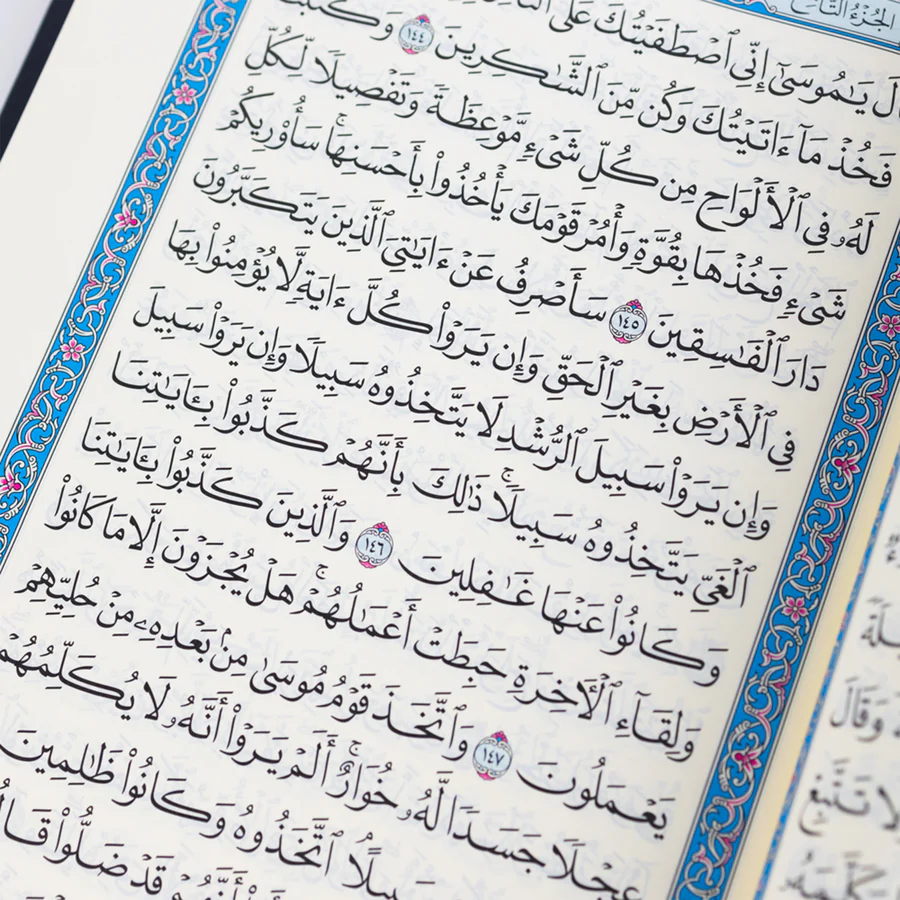 الجزء التاسع
قَالَ يَٰمُوسَىٰٓ إِنِّي ٱصۡطَفَيۡتُكَ عَلَى
فَخُذۡ مَآ ءَاتَيۡتُكَ وَكُن مِّنَ ٱلشَّٰكِرِينَ ١٤٤ وَكَتَبۡنَا
لَهُۥ فِي ٱلۡأَلۡوَاحِ مِن كُلِّ شَيۡءٖ مَّوۡعِظَةٗ وَتَفۡصِيلٗا لِّكُلِّ
شَيۡءٖ فَخُذۡهَا بِقُوَّةٖ وَأۡمُرۡ قَوۡمَكَ يَأۡخُذُواْ بِأَحۡسَنِهَاۚ سَأُوْرِيكُمۡ
دَارَ ٱلۡفَٰسِقِينَ ١٤٥ سَأَصۡرِفُ عَنۡ ءَايَٰتِيَ ٱلَّذِينَ يَتَكَبَّرُونَ
فِي ٱلۡأَرۡضِ بِغَيۡرِ ٱلۡحَقِّ وَإِن يَرَوۡاْ كُلَّ ءَايَةٖ لَّا يُؤۡمِنُواْ بِهَا
وَإِن يَرَوۡاْ سَبِيلَ ٱلرُّشۡدِ لَا يَتَّخِذُوهُ سَبِيلٗا وَإِن يَرَوۡاْ سَبِيلَ
ٱلۡغَيِّ يَتَّخِذُوهُ سَبِيلٗاۚ ذَٰلِكَ بِأَنَّهُمۡ كَذَّبُواْ بِـَٔايَٰتِنَا
وَكَانُواْ عَنۡهَا غَٰفِلِينَ ١٤٦ وَٱلَّذِينَ كَذَّبُواْ بِـَٔايَٰتِنَا
وَلِقَآءِ ٱلۡأٓخِرَةِ حَبِطَتۡ أَعۡمَٰلُهُمۡۚ هَلۡ يُجۡزَوۡنَ إِلَّا مَا كَانُواْ
يَعۡمَلُونَ ١٤٧ وَٱتَّخَذَ قَوۡمُ مُوسَىٰ مِنۢ بَعۡدِهِۦ مِنۡ حُلِيِّهِمۡ
عِجۡلٗا جَسَدٗا لَّهُۥ خُوَارٌۚ أَلَمۡ يَرَوۡاْ أَنَّهُۥ لَا يُكَلِّمُهُمۡ
سَبِيلًاۘ ٱتَّخَذُوهُ وَكَانُواْ ظَٰلِمِينَ
أَنَّهُمۡ قَدۡ ضَلُّواْ قَالُواْ
وَقَالَ